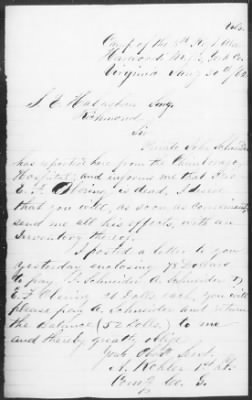 Camp of the 5th
Virginia Aug 30th /62
Surg
Richmond
Sir
Private John Schneider
has reported here from the
Hospital, and informs me that
E. F. is dead, I desire
that you will, as soon as convenient
send me all his effects, with an
Inventory thereof
I posted a letter to you
yesterday enclosing 78 Dollars
to pay J. Schneider A. Schneider &
E. F. 26 Dolls each, you will
please pay A. Schneider and return
the Balance (52 Dolls.) to me
and thereby greatly oblige
Your Obt Servt
A. Kohler 1st Lt.
Comg Co.